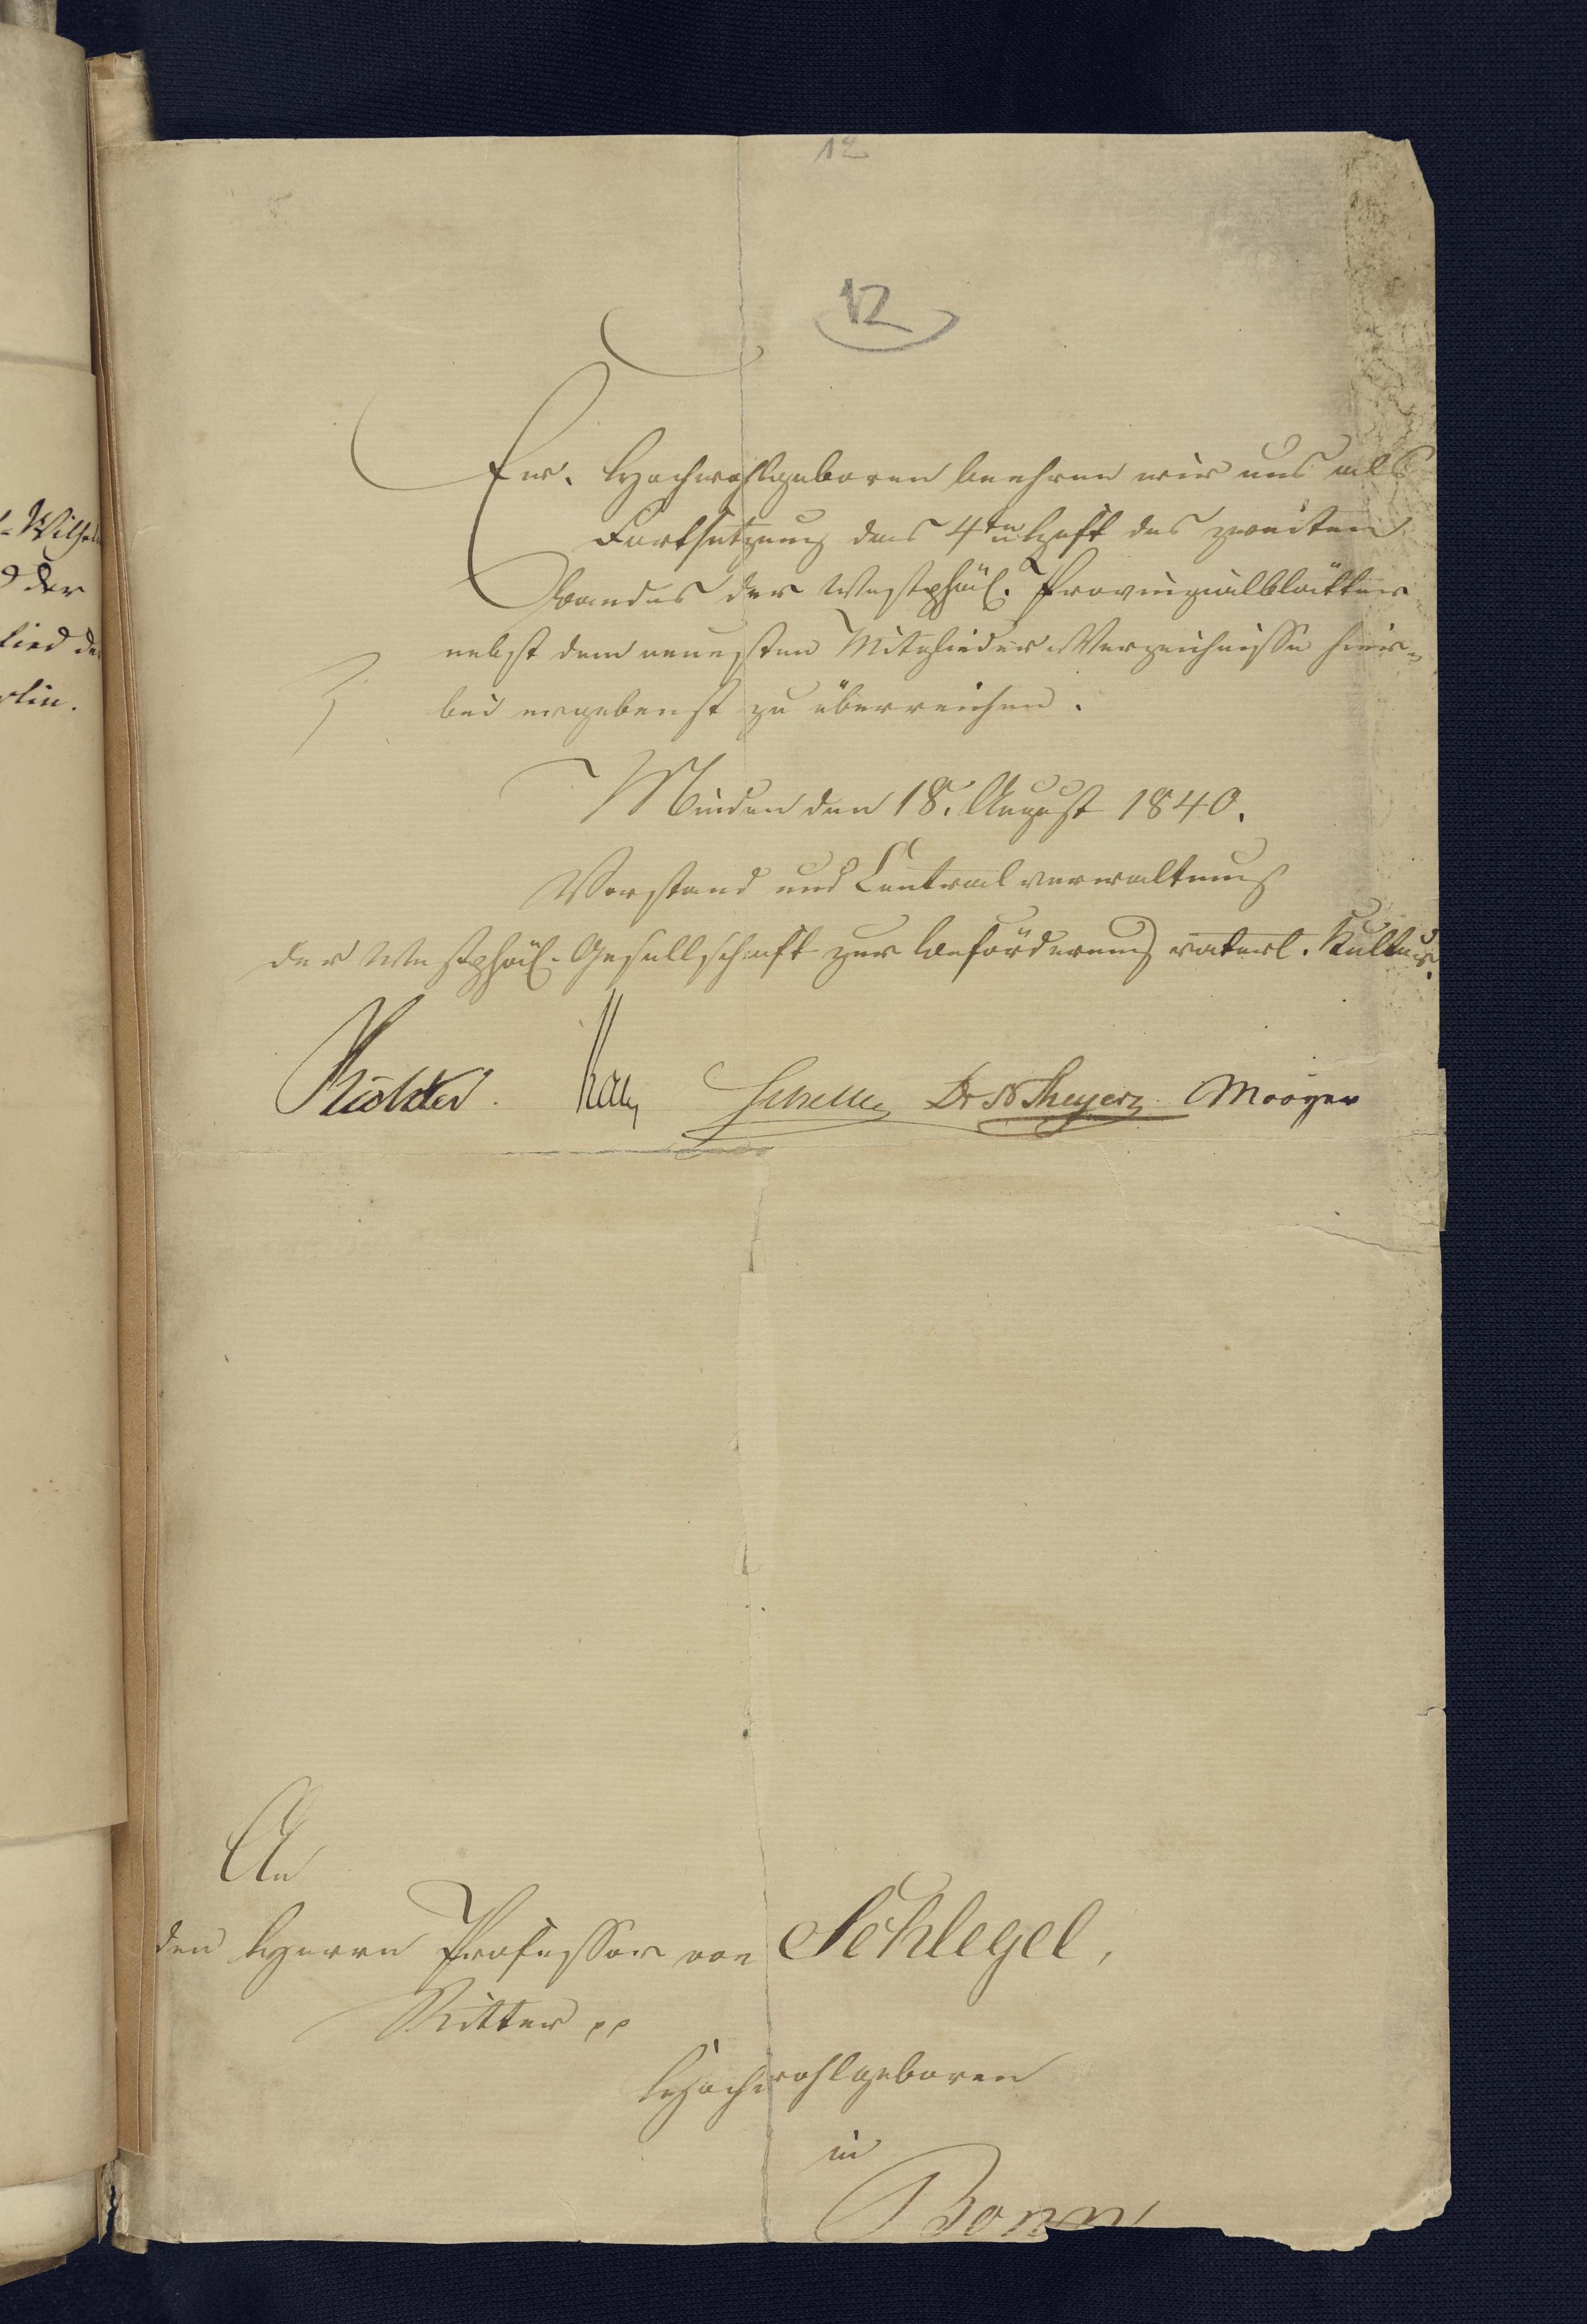 12
12
Ew. Hochwohlgeboren beehren wir uns als
Fortsetzung das 4te Heft des zweiten
Bandes der Westphäl. Provinzialblätter
nebst dem neuesten Mitglieder-Verzeichnisse hier-
bei ergebenst zu überreichen.
Minden den 18. August 1840.
Vorstand und Centralverwaltung
der Westphäl. Gesellschaft zur Beförderung vaterl. Kultur.
Richter. Dr NMeyer Mooyer
An
den Herrn Professor von Schlegel,
Ritter pp
Hochwohlgeboren
in
Bonn
der
lied de
rlin.